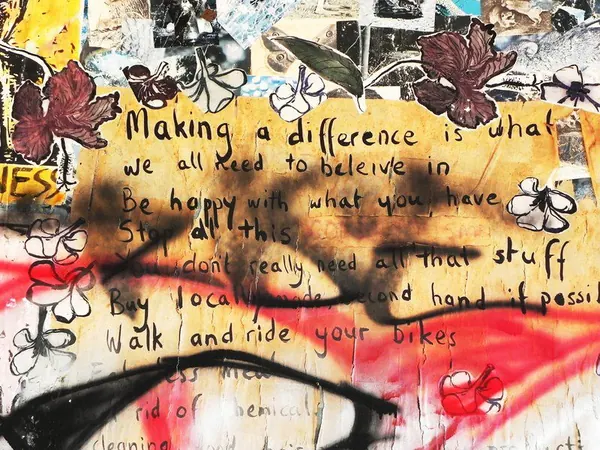 Making a difference is what
we all need to beleive in
Be happy with what you have
Stop all this
You dont really need all that stuff
NESS
Buy locally made, second hand if possil
Walk and ride your bikes
Eat less meat
rid of chemicals
cleaning